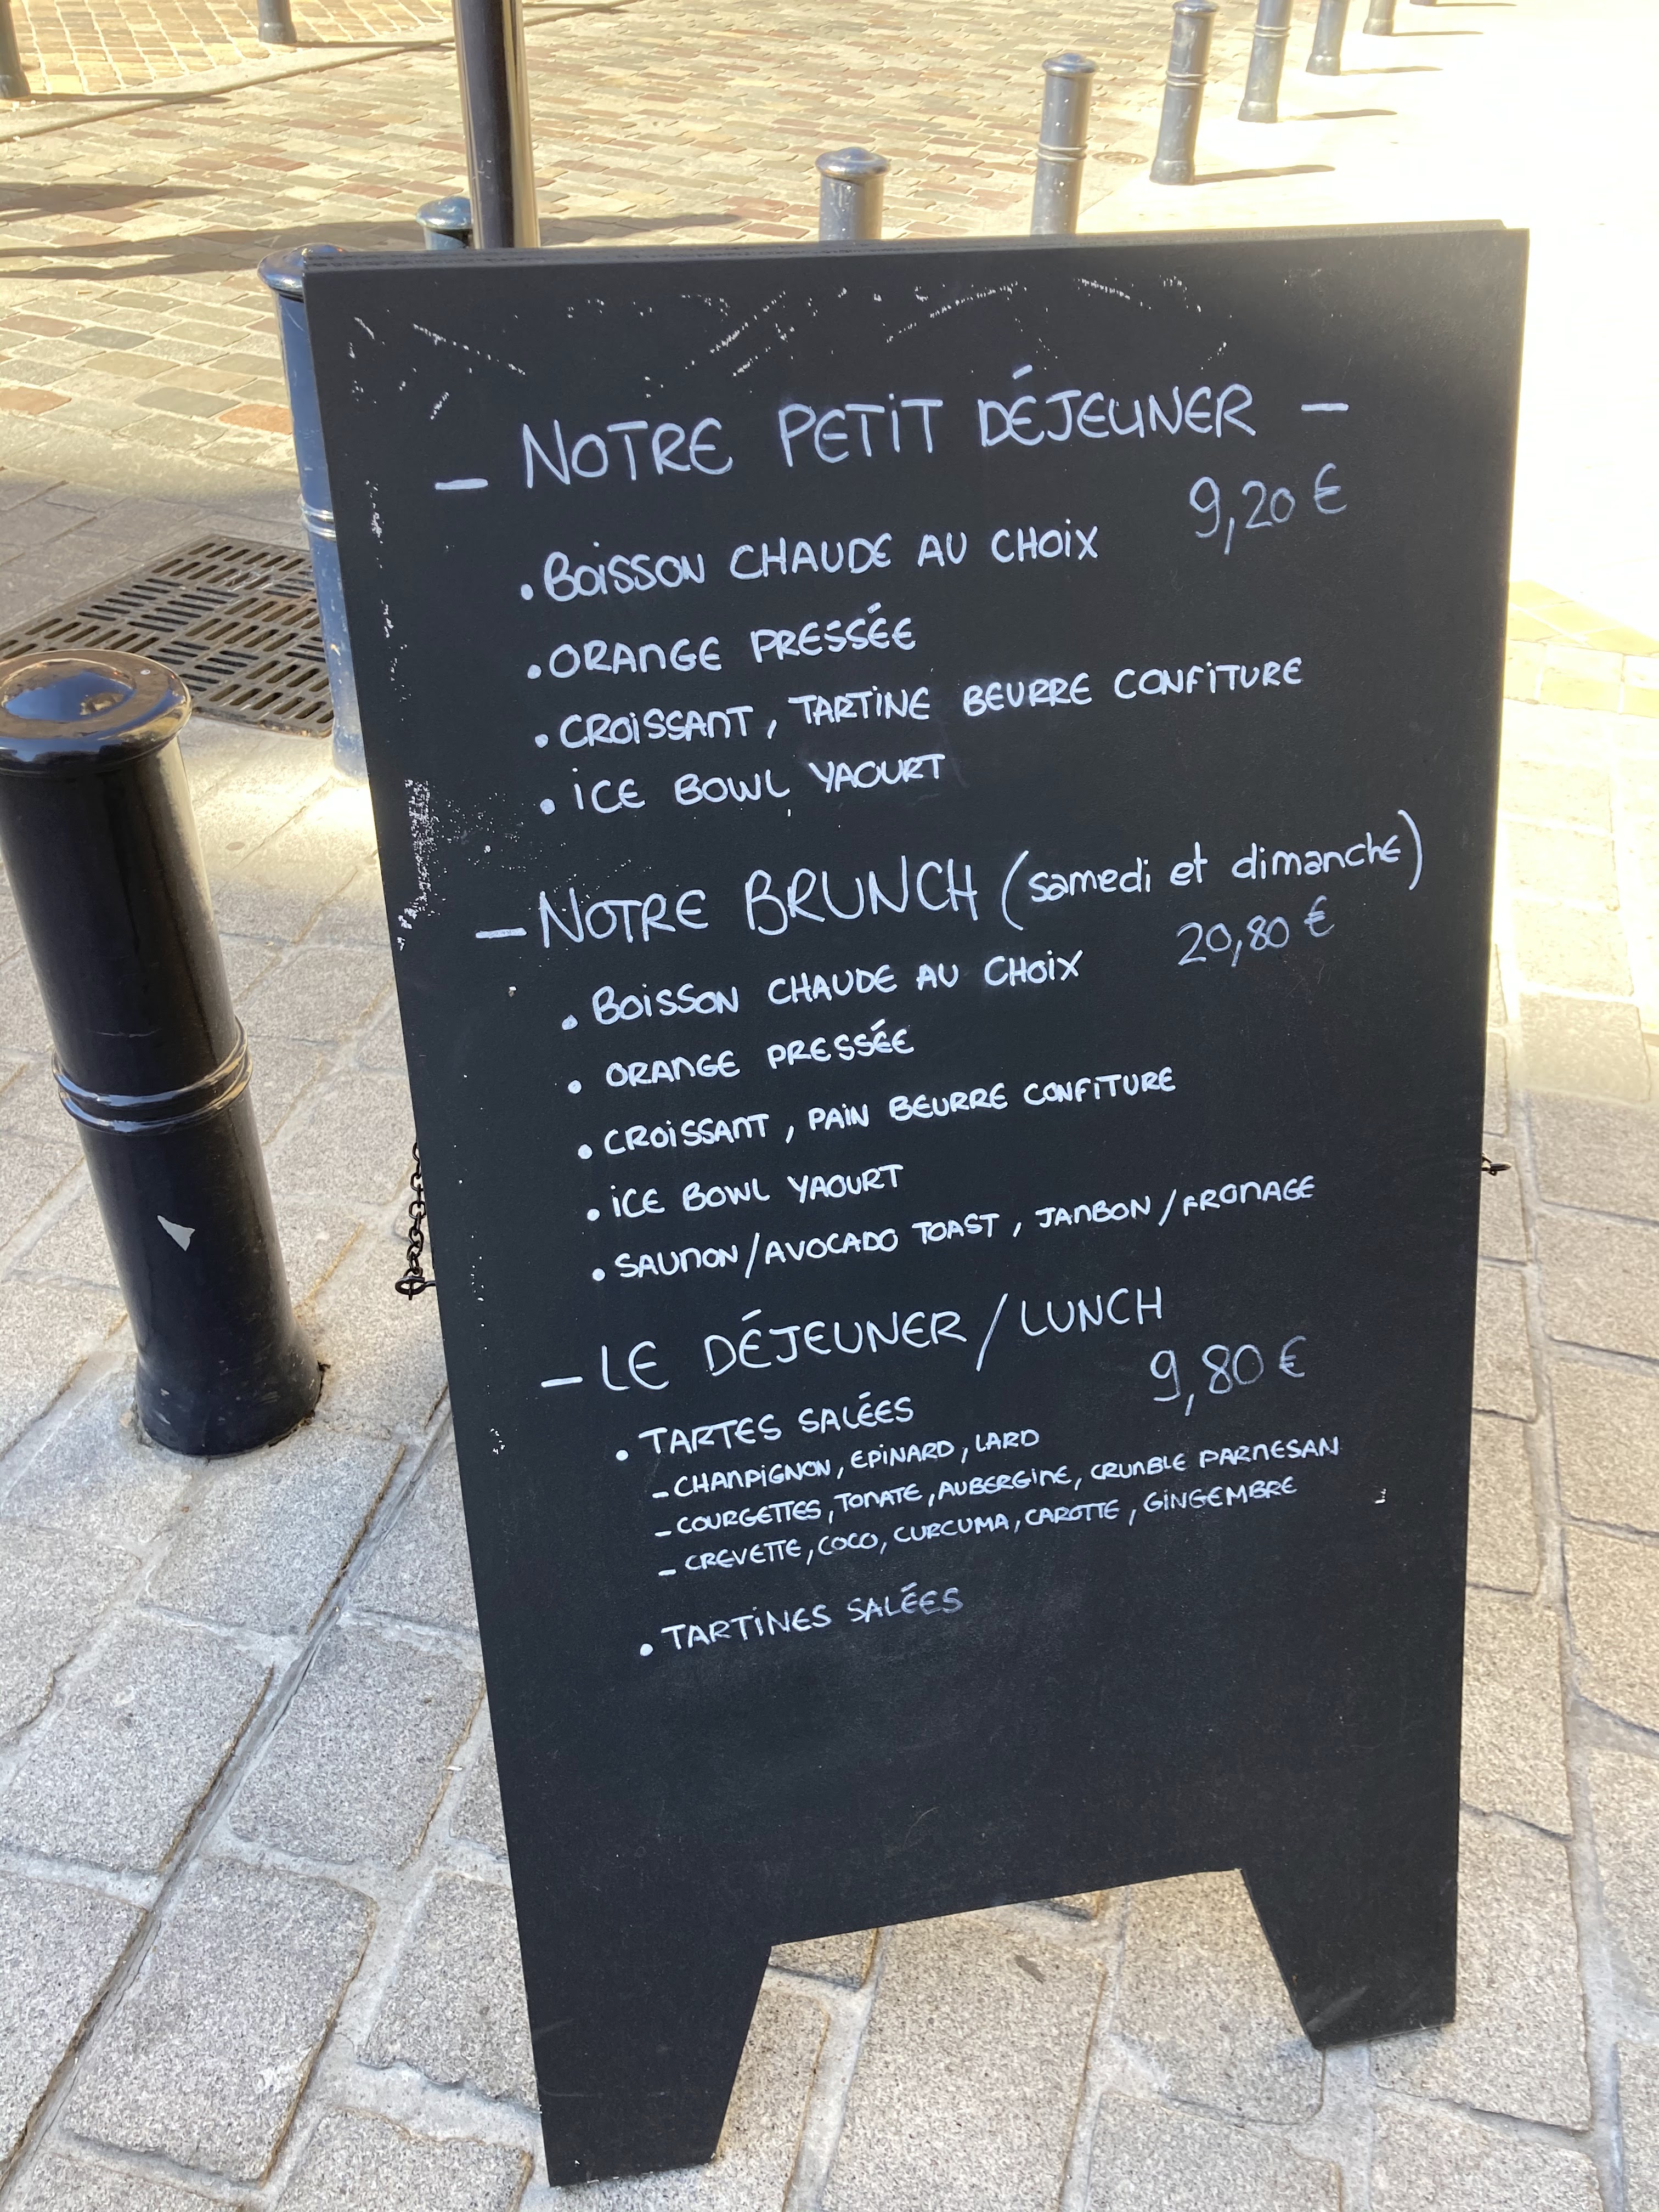 - NOTRE PETIT DÉJEUNER -
9,20 €
. BOISSON CHAUDE AU CHOIX
. ORANGE PRESSÉE
. CROISSANT, TARTINE BEURRE CONFITURE
. ICE BOWL YAOURT
- NOTRE BRUNCH (samedi et dimanche)
20,80 €
. BOISSON CHAUDE AU CHOIX
. ORANGE PRESSÉE
. CROISSANT, PAIN BEURRE CONFITURE
. ICE BOWL YAOURT
. SAUMON/AVOCADO TOAST, JAMBON/FROMAGE
- LE DÉJEUNER/LUNCH
9,80 €
. TARTES SALÉES
- CHAMPIGNON, EPINARD, LARD
- COURGETTES, TOMATE, AUBERGINE, CRUMBLE PARMESAN
- CREVETTE, COCO, CURCUMA, CAROTTE, GINGEMBRE
. TARTINES SALÉES